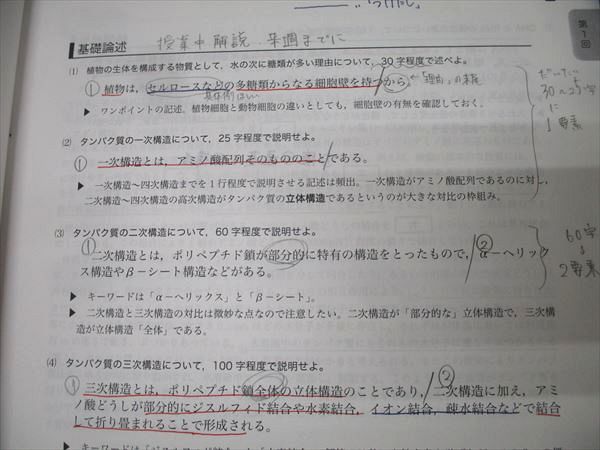 第1回
基礎論述 授業中解説. 来週までに
(1) 植物の生体を構成する物質として，水の次に糖類が多い理由について，30字程度で述べよ。
① 植物は，セルロースなどの多糖類からなる細胞壁を持つから。 「理由」の末尾
具体例ほしい
▶ ワンポイントの記述。植物細胞と動物細胞の違いとしても，細胞壁の有無を確認しておく。
だいたい
30〜25字
に
1要素
(2) タンパク質の一次構造について，25字程度で説明せよ。
① 一次構造とは，アミノ酸配列そのもののことである。
▶ 一次構造〜四次構造までを1行程度で説明させる記述は頻出。一次構造がアミノ酸配列であるのに対し，
二次構造〜四次構造の高次構造がタンパク質の立体構造であるというのが大きな対比の枠組み。
(3) タンパク質の二次構造について，60字程度で説明せよ。
① 二次構造とは，ポリペプチド鎖が部分的に特有の構造をとったもので，② α－ヘリック
ス構造やβ－シート構造などがある。
60字
↓
2要素
▶ キーワードは「α－ヘリックス」と「β－シート」。
▶ 二次構造と三次構造の対比は微妙な点なので注意したい。二次構造が「部分的な」立体構造で，三次構
造が立体構造「全体」である。
(4) タンパク質の三次構造について，100字程度で説明せよ。
① 三次構造とは，ポリペプチド鎖全体の立体構造のことであり，② 二次構造に加え，アミ
ノ酸どうしが部分的にジスルフィド結合や水素結合，イオン結合，疎水結合などで結合
して折り畳まれることで形成される。